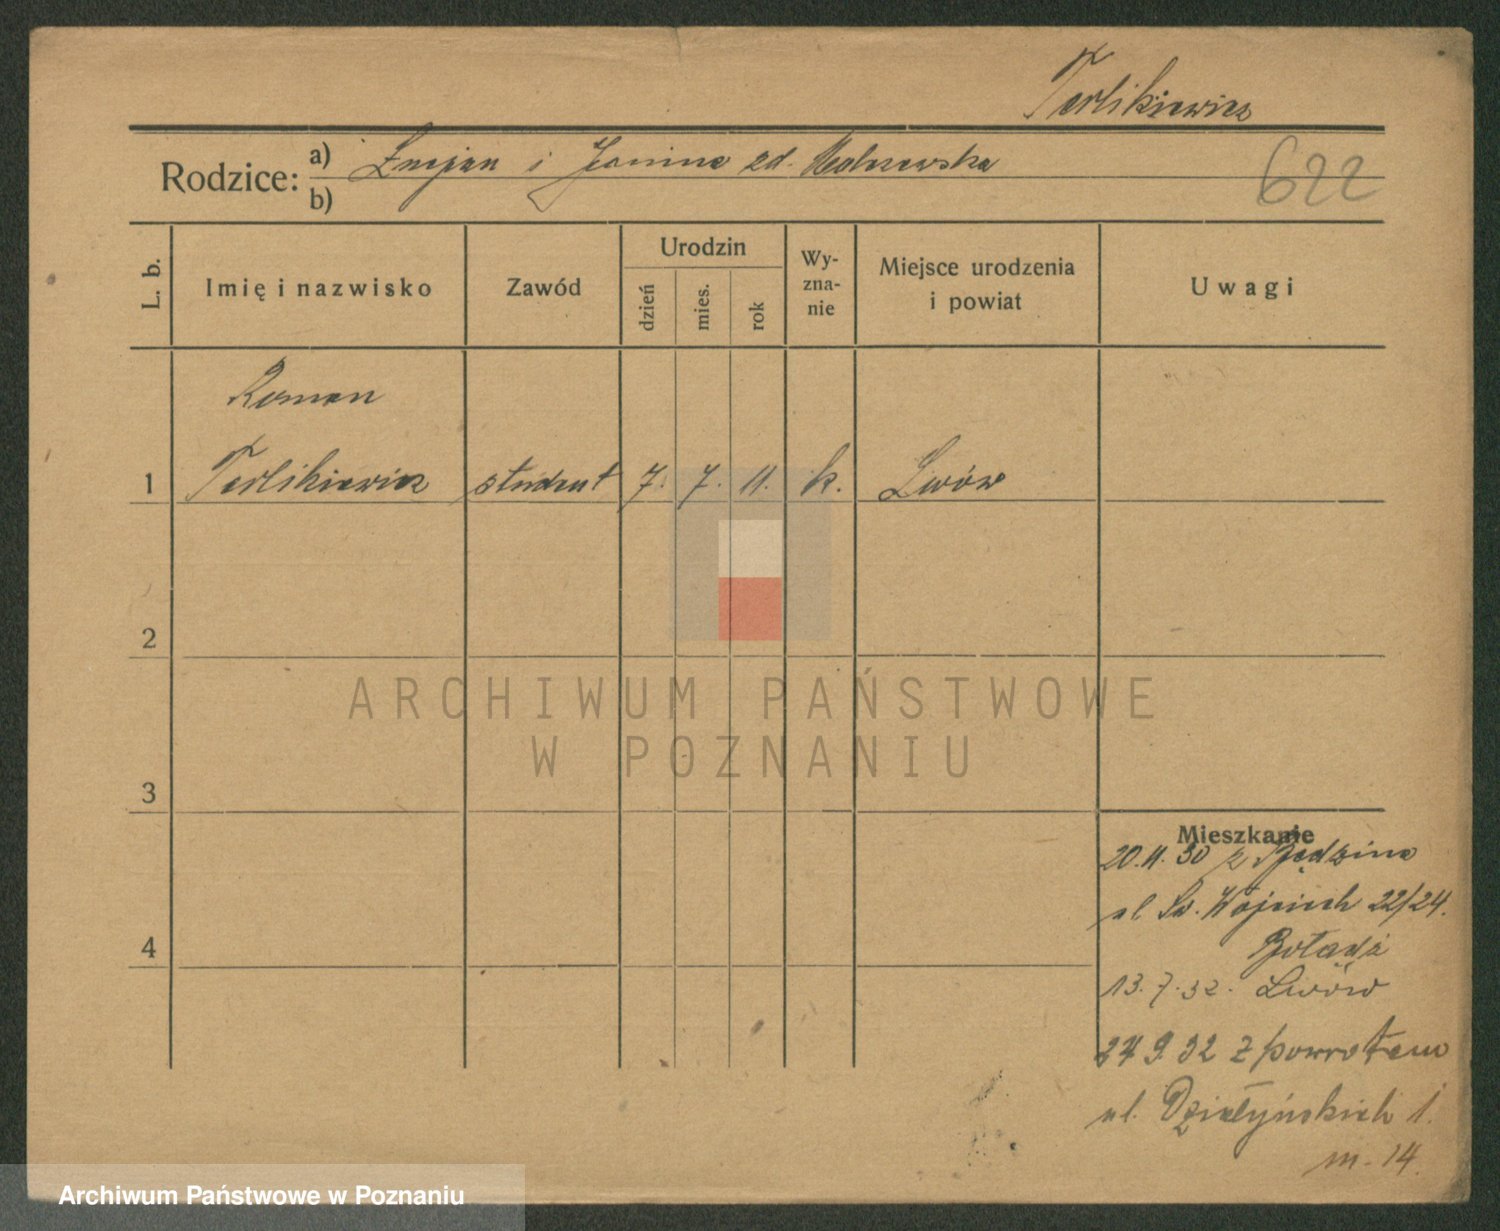 Terlikiewicz
622
Rodzice: a) Lucjan i Janina zd.
b)
L. b.
Imię i nazwisko
Zawód
Urodzin
dzień
mies.
rok
Wy-
zna-
nie
Miejsce urodzenia
i powiat
Uwagi
Roman
1 Terlikiewicz student 7. 7. 11. k. Lwów
2
3
4
ARCHIWUM PAŃSTWOWE
W POZNANIU
Mieszkanie
20.11.30 z Będzina
ul Św. Wojciech 22/24.
13.7.32. Lwów
27 9. 32 z powrotem
ul. Działyńskich 1.
m. 14
Archiwum Państwowe w Poznaniu